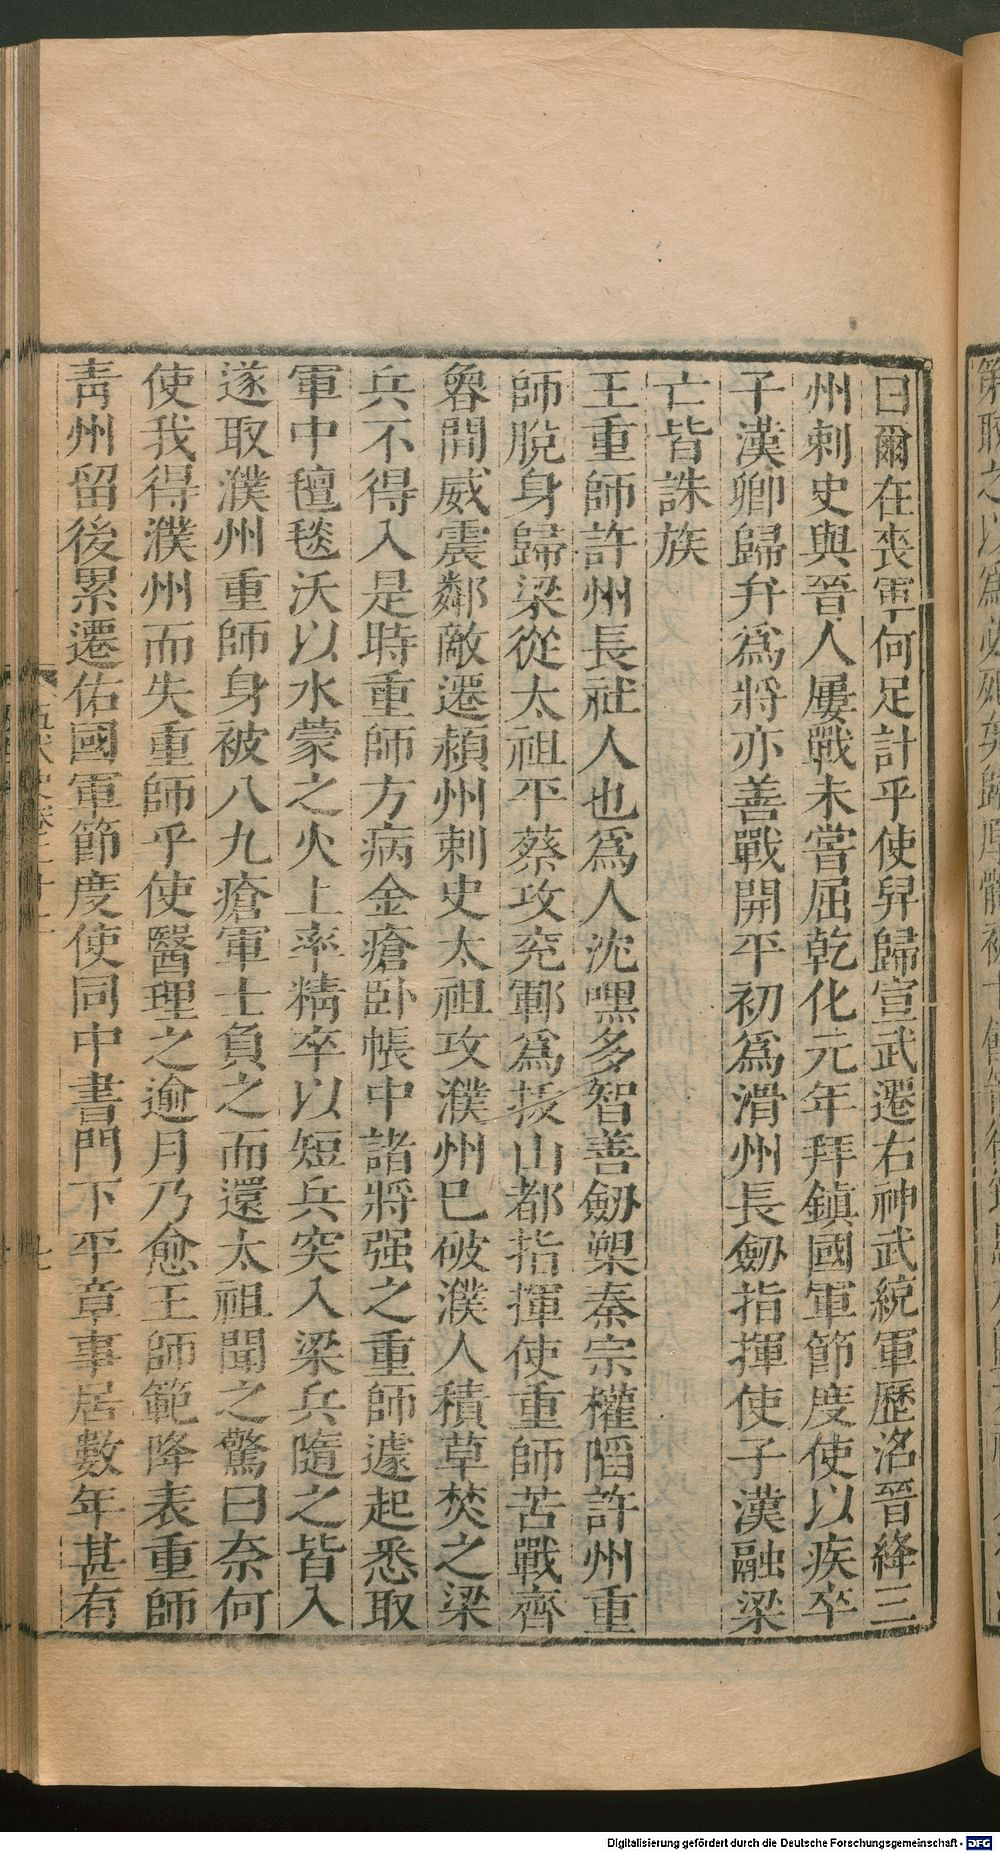 曰爾在喪軍何足計乎使舁歸宣武遷右神武統軍歷洺晉絳三
州刺史與晉人屢戰未嘗屈乾化元年拜鎮國軍節度使以疾卒
子漢卿歸弁爲將亦善戰開平初爲滑州長劒指揮使子漢融梁
亡皆誅族
王重師許州長社人也爲人沈嘿多智善劒槊秦宗權陷許州重
師脫身歸梁從太祖平蔡攻兖鄆爲拔山都指揮使重師苦戰齊
魯間威震鄰敵遷潁州刺史太祖攻濮州已破濮人積草焚之梁
兵不得入是時重師方病金瘡卧帳中諸將强之重師遽起悉取
軍中氊毯沃以水蒙之火上率精卒以短兵突入梁兵隨之皆入
遂取濮州重師身被八九瘡軍士負之而還太祖聞之驚曰奈何
使我得濮州而失重師乎使醫理之逾月乃愈王師範降表重師
青州留後累遷佑國軍節度使同中書門下平章事居數年甚有
Digitalisierung gefördert durch die Deutsche Forschungsgemeinschaft - DFG